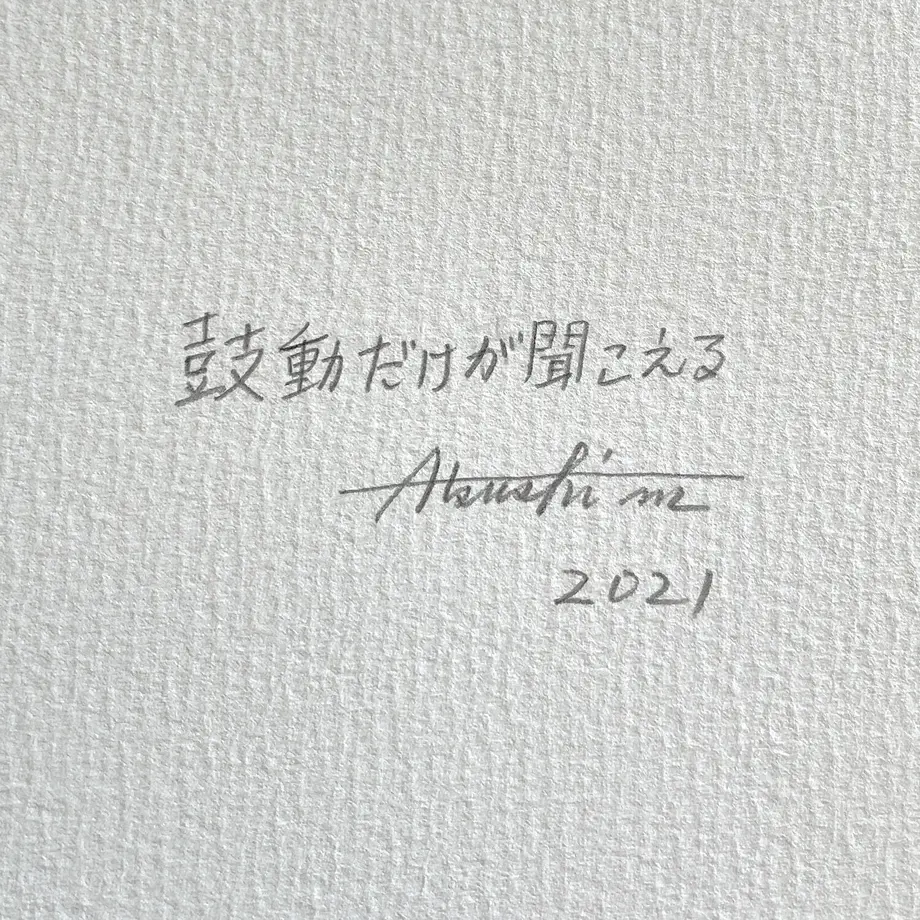 鼓動だけが聞こえる
Atsushi m
2021